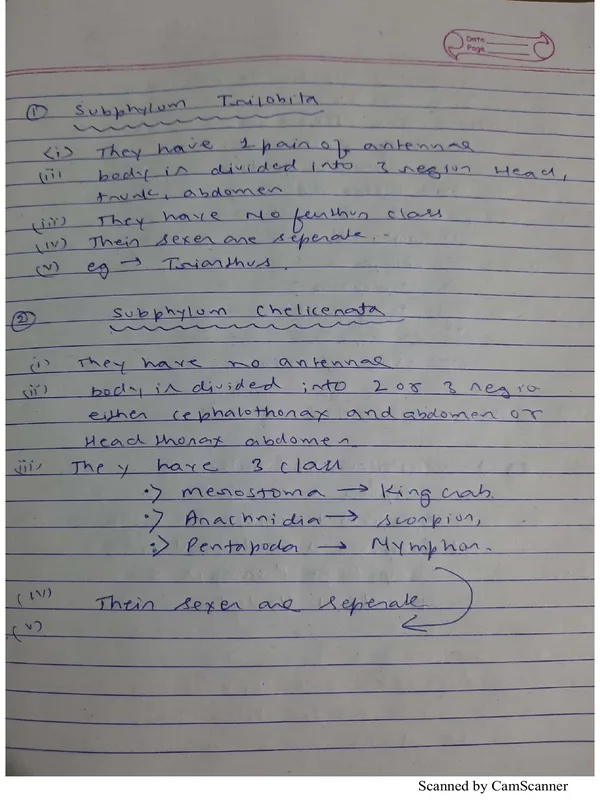 Date
Page
① Subphylum Trilobita
(i) They have 1 pair of antennae
(ii) body is divided into 3 region Head,
trunk, abdomen
(iii) They have No further class
(iv) Their sexer are seperate.
(v) eg → Trianthus.
② Subphylum Chelicerata
(i) They have no antennae
(ii) body is divided into 2 or 3 regio
either cephalothorax and abdomen or
Head thorax abdomen.
(iii) They have 3 class
•> merostoma → King crab.
•> Arachnidia → scorpion,
•> Pentapoda → Nymphon.
(IV) Their sexer are seperate
(V)
Scanned by CamScanner